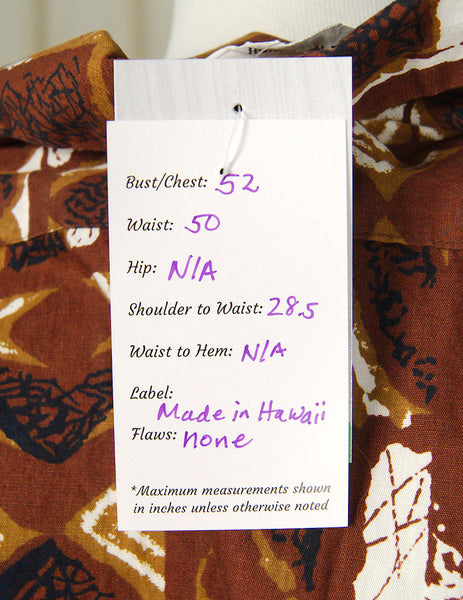 Bust/Chest: 52
Waist: 50
Hip: N/A
Shoulder to Waist: 28.5
Waist to Hem: N/A
Label:
Made in Hawaii
Flaws: none
*Maximum measurements shown
in inches unless otherwise noted